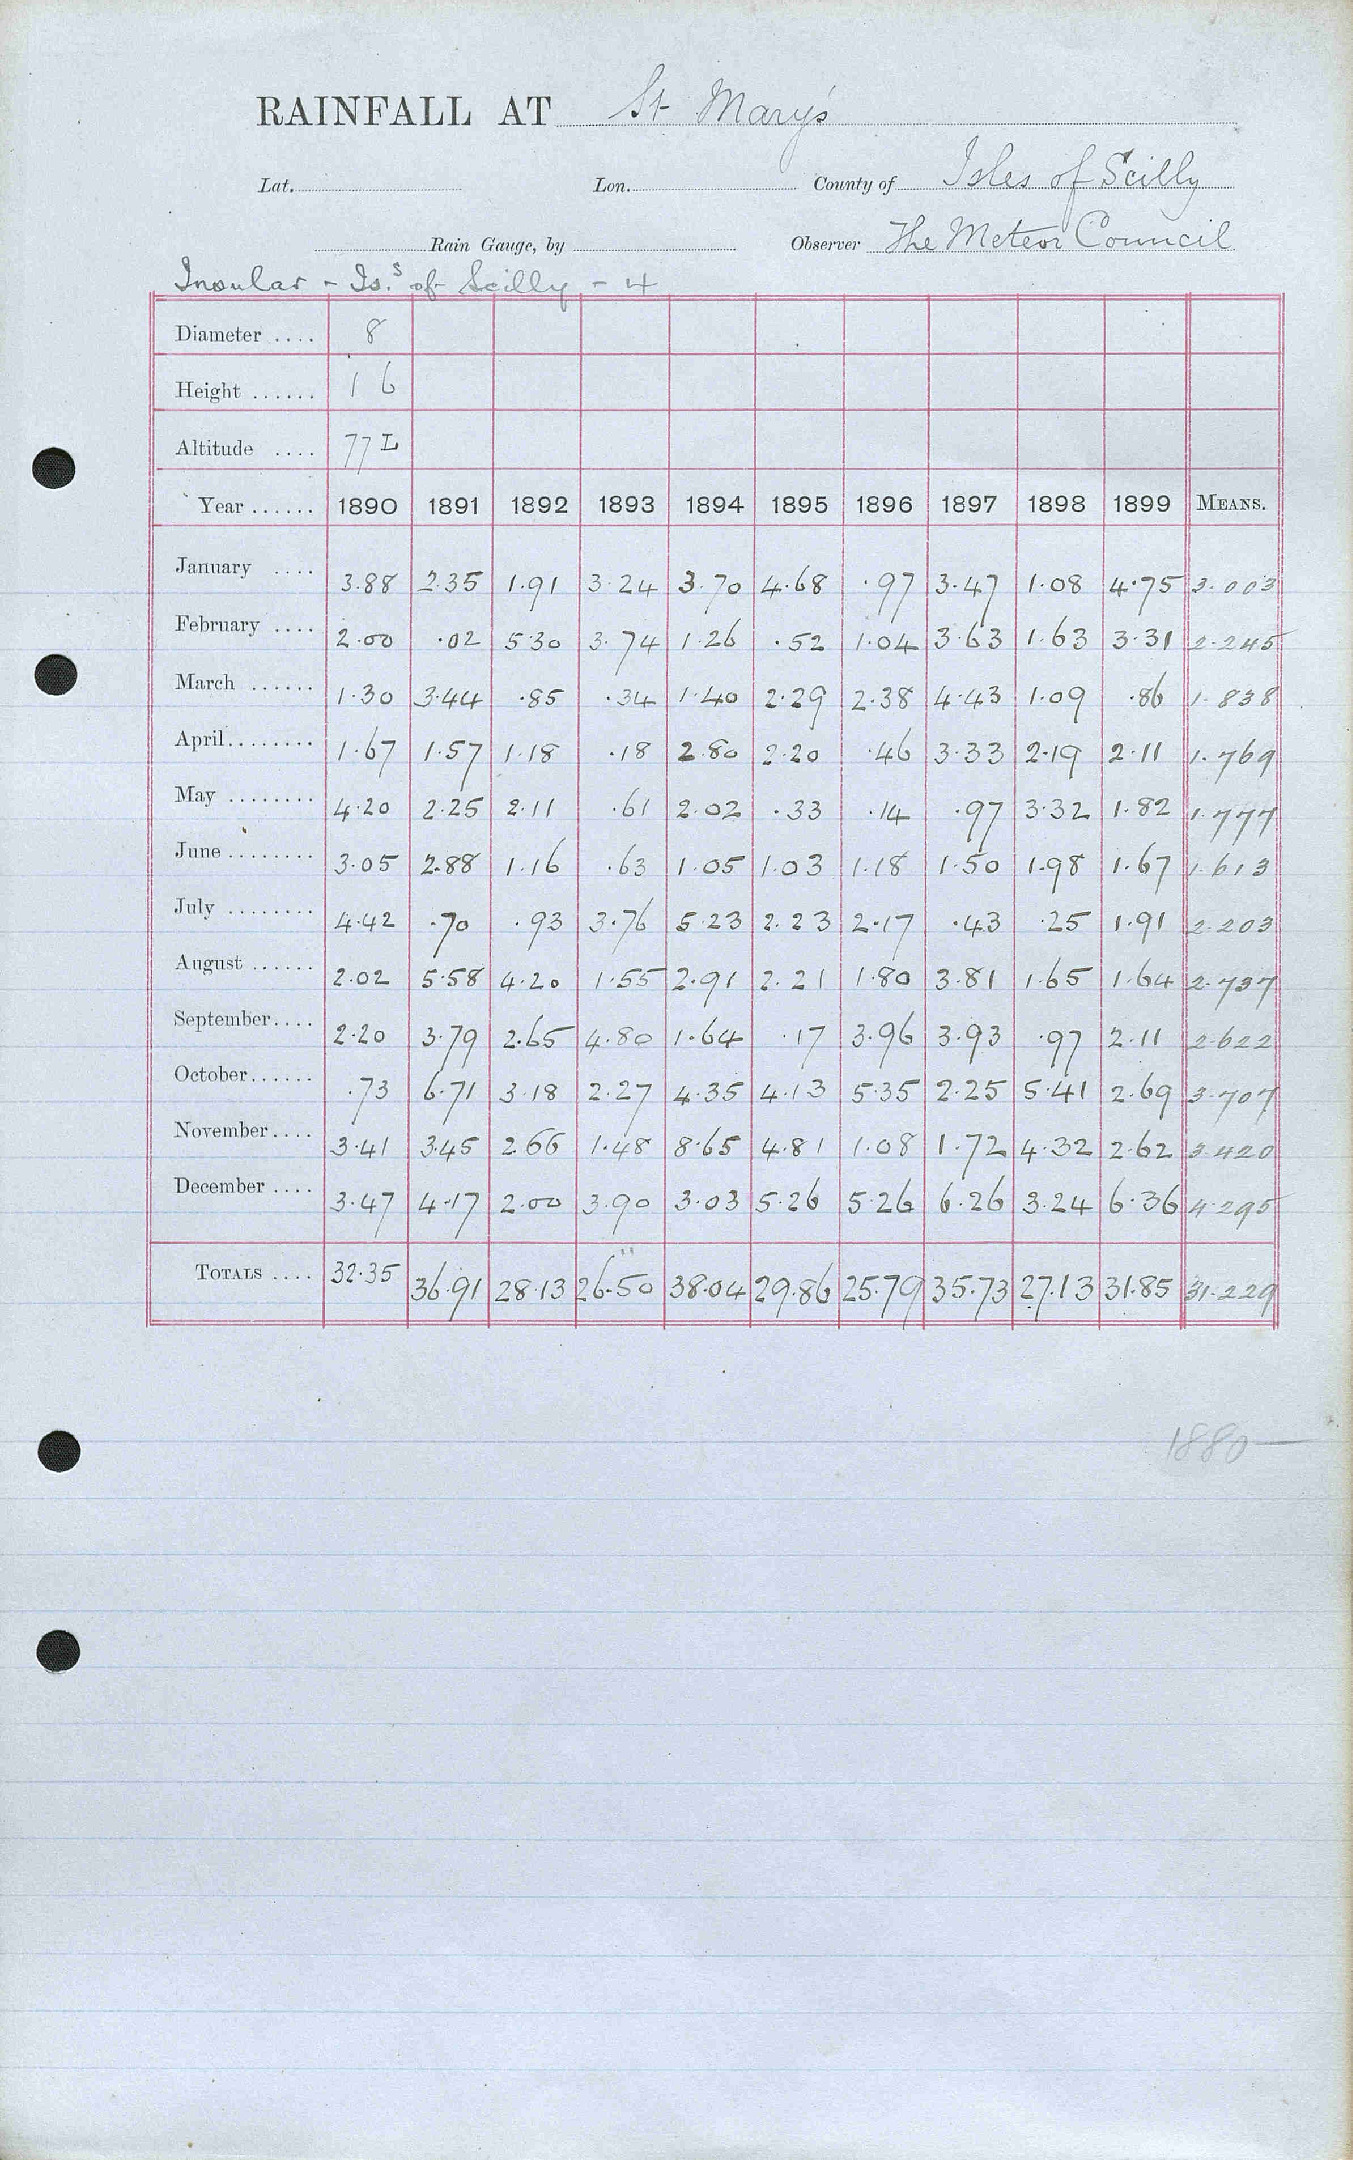 RAINFALL AT St Mary's
Lat. Lon. County of Isles of Scilly
Rain Gauge, by Observer The Meteor Council
Insular - Is.s of Scilly - 4
Diameter .... 8
Height ...... 1 6
Altitude .... 77 L
Year ...... 1890 1891 1892 1893 1894 1895 1896 1897 1898 1899 MEANS.
January .... 3.88 2.35 1.91 3.24 3.70 4.68 .97 3.47 1.08 4.75 3.003
February .... 2.00 .02 5.30 3.74 1.26 .52 1.04 3.63 1.63 3.31 2.245
March ...... 1.30 3.44 .85 .34 1.40 2.29 2.38 4.43 1.09 .86 1.838
April........ 1.67 1.57 1.18 .18 2.80 2.20 .46 3.33 2.19 2.11 1.769
May ........ 4.20 2.25 2.11 .61 2.02 .33 .14 .97 3.32 1.82 1.777
June ........ 3.05 2.88 1.16 .63 1.05 1.03 1.18 1.50 1.98 1.67 1.613
July ........ 4.42 .70 .93 3.76 5.23 2.23 2.17 .43 .25 1.91 2.203
August ...... 2.02 5.58 4.20 1.55 2.91 2.21 1.80 3.81 1.65 1.64 2.737
September.... 2.20 3.79 2.65 4.80 1.64 .17 3.96 3.93 .97 2.11 2.622
October...... .73 6.71 3.18 2.27 4.35 4.13 5.35 2.25 5.41 2.69 3.707
November.... 3.41 3.45 2.66 1.48 8.65 4.81 1.08 1.72 4.32 2.62 3.420
December .... 3.47 4.17 2.00 3.90 3.03 5.26 5.26 6.26 3.24 6.36 4.295
TOTALS .... 32.35 36.91 28.13 26.50 38.04 29.86 25.79 35.73 27.13 31.85 31.229
1880—